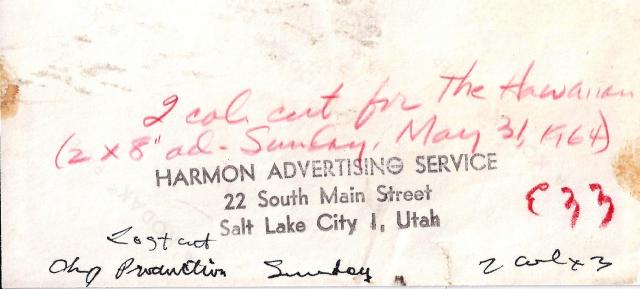 2 col. cut for The Hawaiian
(2 x 8" ad - Sunday, May 31, 1964)
HARMON ADVERTISING SERVICE
22 South Main Street
Salt Lake City 1, Utah
E33
cut
Production Sunday 2 col x 3